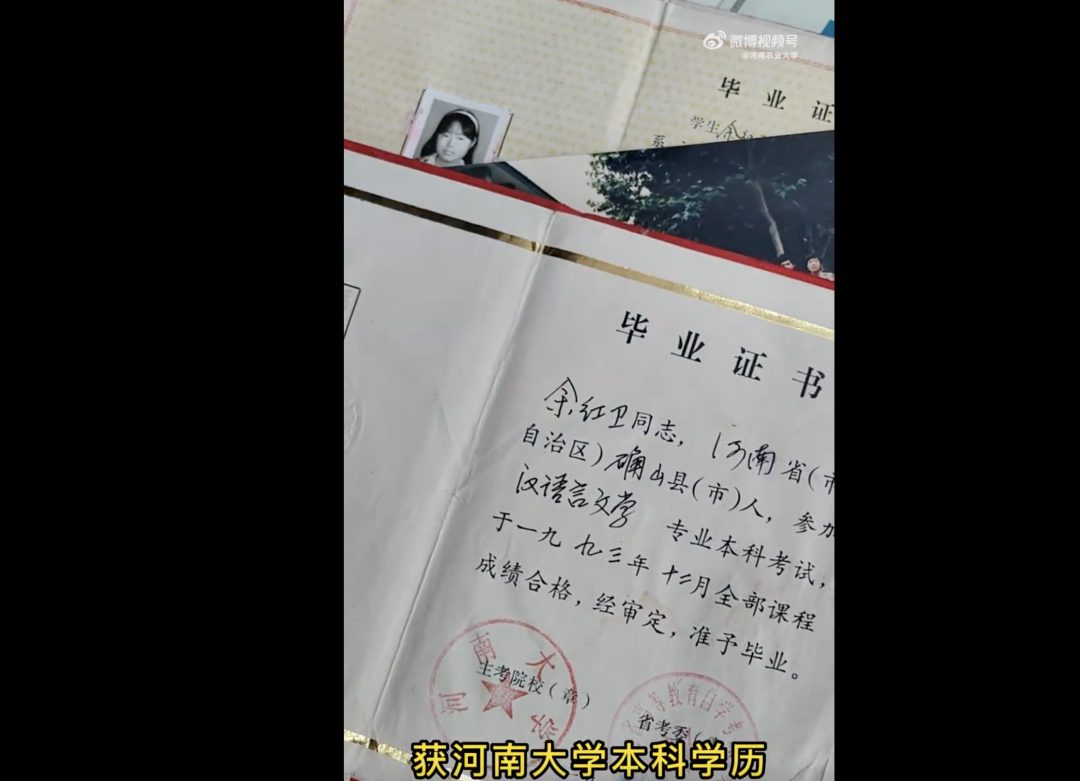 微博视频号
@河南农业大学
毕业证
学生余红
系
毕业证书
余红卫同志，河南省(市
自治区)确山县(市)人，参加
汉语言文学 专业本科考试，
于一九九三年十二月全部课程
成绩合格，经审定，准予毕业。
河南大学
主考院校(章)
高等教育自学考
省考委(
获河南大学本科学历